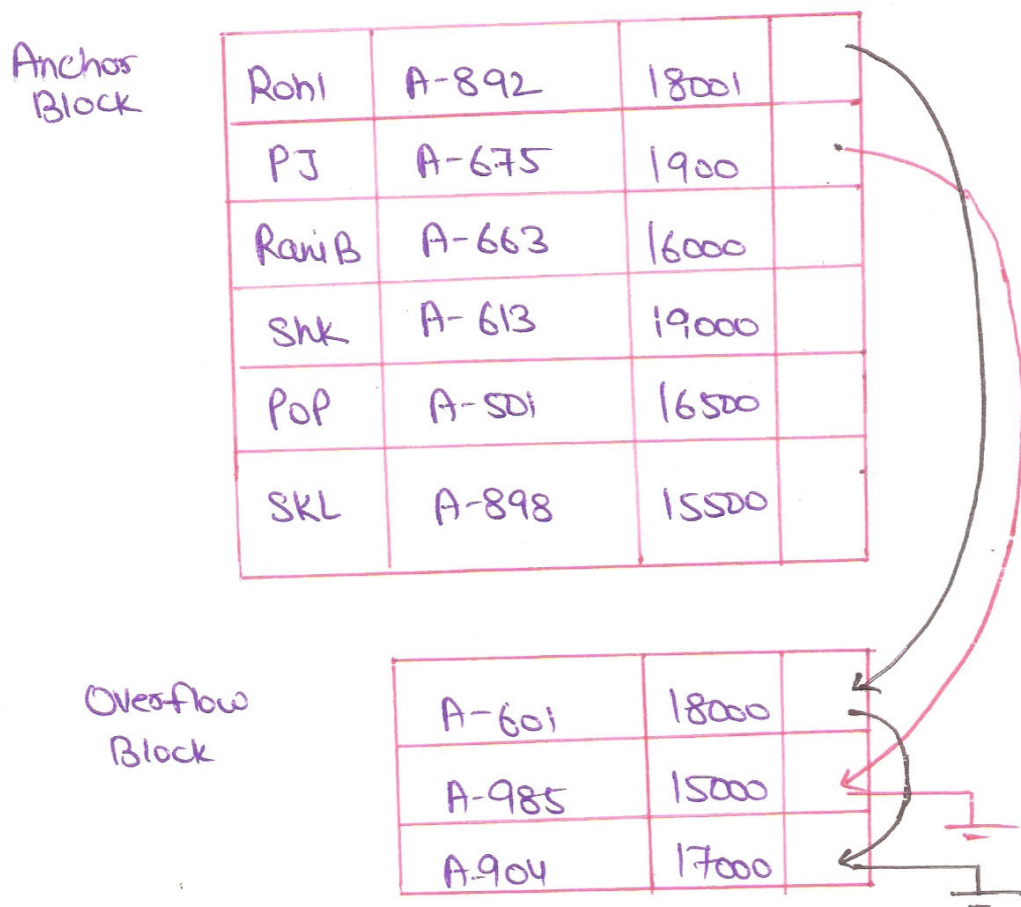 Anchor
Block
Rohl A-892 18001
PJ A-675 1900
RaniB A-663 16000
Shk A-613 19000
POP A-501 16500
SKL A-898 15500
Overflow
Block
A-601 18000
A-985 15000
A-904 17000